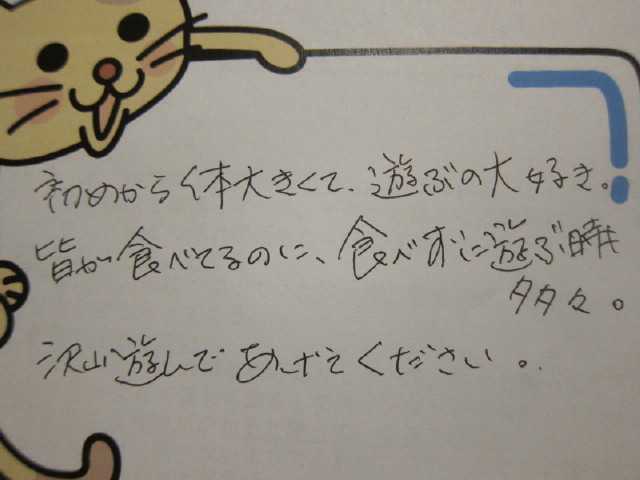 初めから体大きくて、遊ぶの大好き。
皆が食べてるのに、食べずに遊ぶ時
多々。
沢山遊んであげてください。